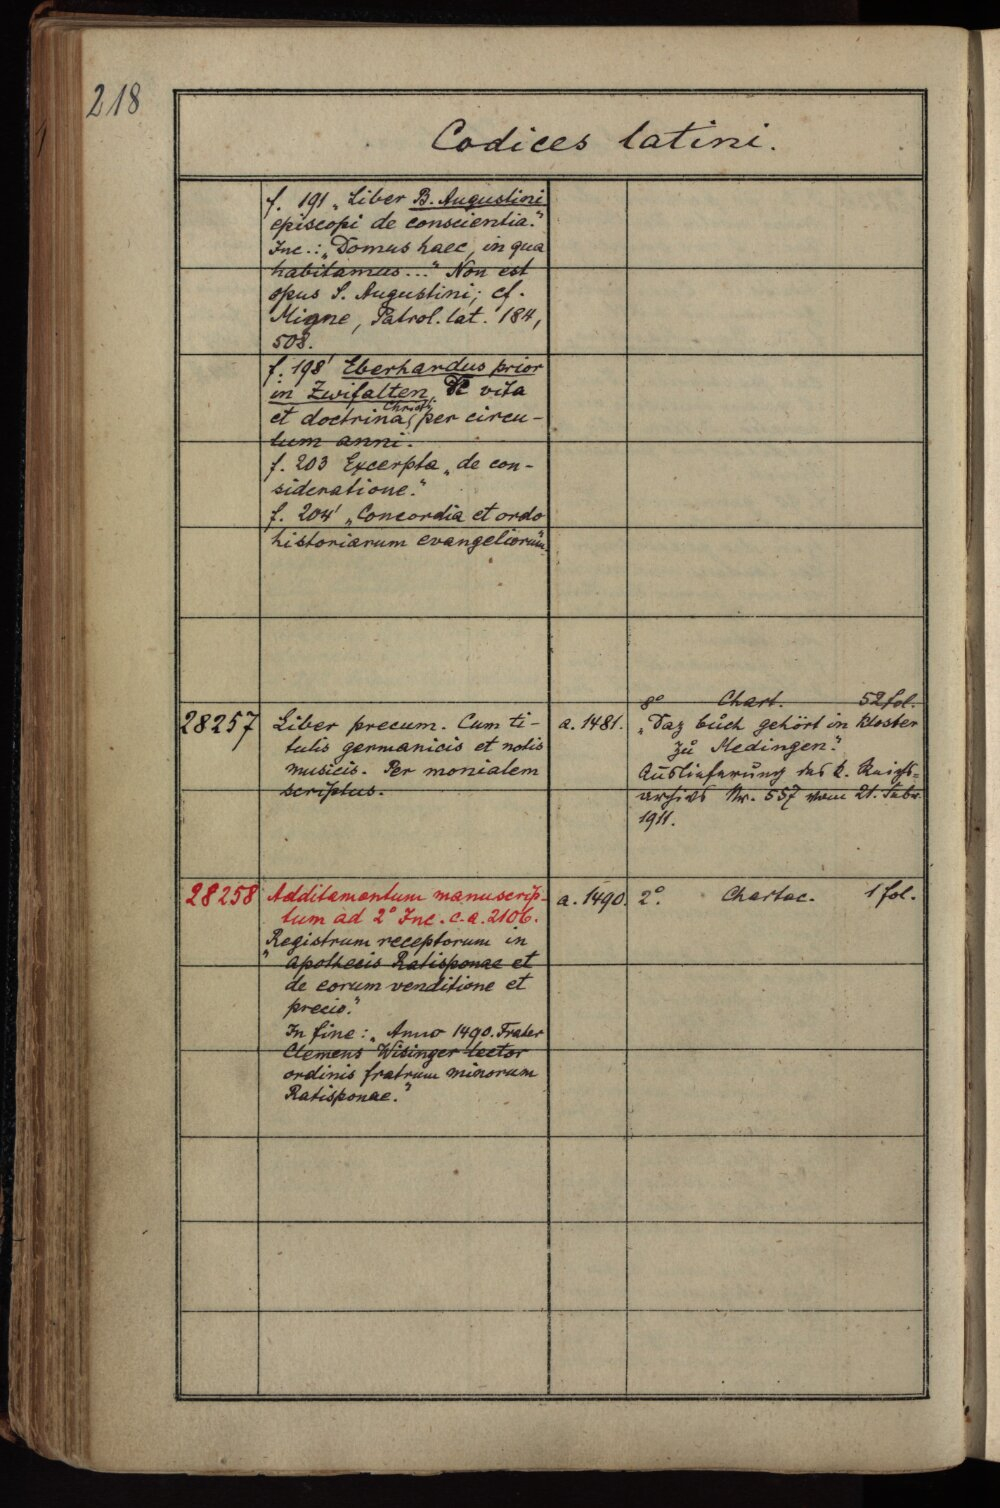 218
Codices latini.
f. 191 „Liber B. Augustini
episcopi de conscientia."
Inc.: „Domus haec, in qua
habitamus ..." Non est
opus S. Augustini; cf.
Migne, Patrol. lat. 184,
508.
f. 198' Eberhardus prior
in Zwifalten, De vita
et doctrina Christi per circu-
lum anni.
f. 203 Excerpta „de con-
sideratione."
f. 204' „Concordia et ordo
historiarum evangeliorum"
8° Chart. 52 fol.
28257 Liber precum. Cum ti- a. 1481. „Daz buch gehört in kloster
tulis germanicis et notis zu Medingen."
musicis. Per monialem Auslieferung des k. Reichs-
scriptus. archivs Nr. 557 vom 21. Febr.
1911.
28258 Additamentum manuscrip- a. 1490. 2° Chartac. 1 fol.
tum ad 2° Inc. c. a. 2106.
„Registrum receptorum in
apothecis Ratisponae et
de eorum venditione et
precio."
In fine: „Anno 1490. Frater
Clemens Wisinger lector
ordinis fratrum minorum
Ratisponae."